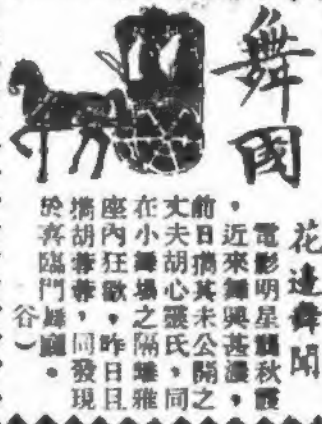 舞國
花邊舞聞
電影明星龔秋霞
，近來舞興甚濃，
前日携其未公開之
丈夫胡心靈氏，同
在小舞場之隔離雅
座內狂歡，昨日且
携胡蓉蓉，同發現
於喜臨門舞廳。
谷）